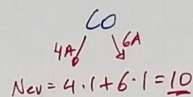 CO
4A 6A
Nev = 4·1+6·1=10